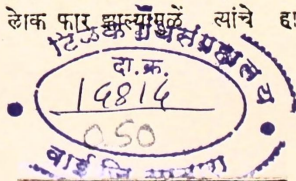 लोक फार झाल्यामुळें त्यांचे
टिळक ग्रंथसंग्रहालय
दा.क्र.
14814
050
वाई जि सातारा